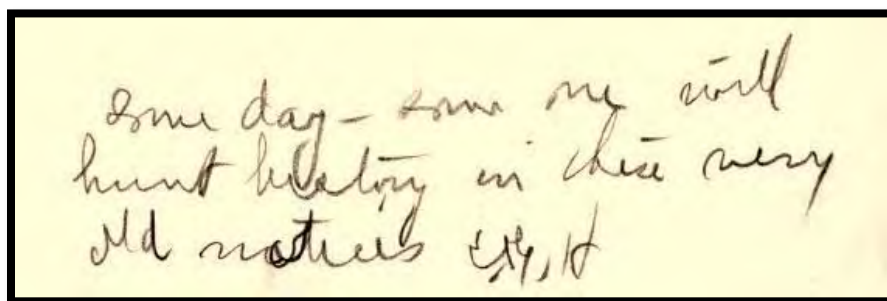 some day – some one will
hunt history in these very
old notices